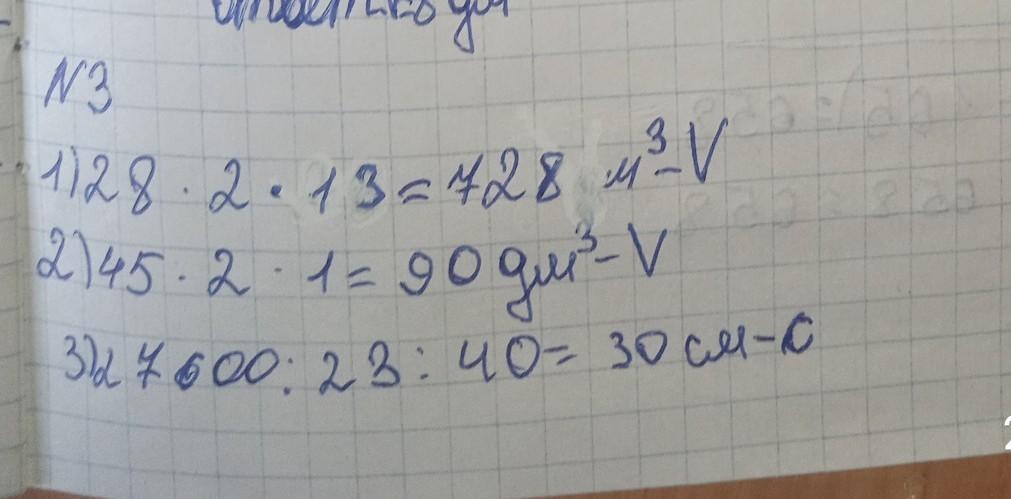 N3
1) 28 · 2 · 13 = 728 м³ - V
2) 45 · 2 · 1 = 90 дм³ - V
3) 27600 : 23 : 40 = 30 см - c